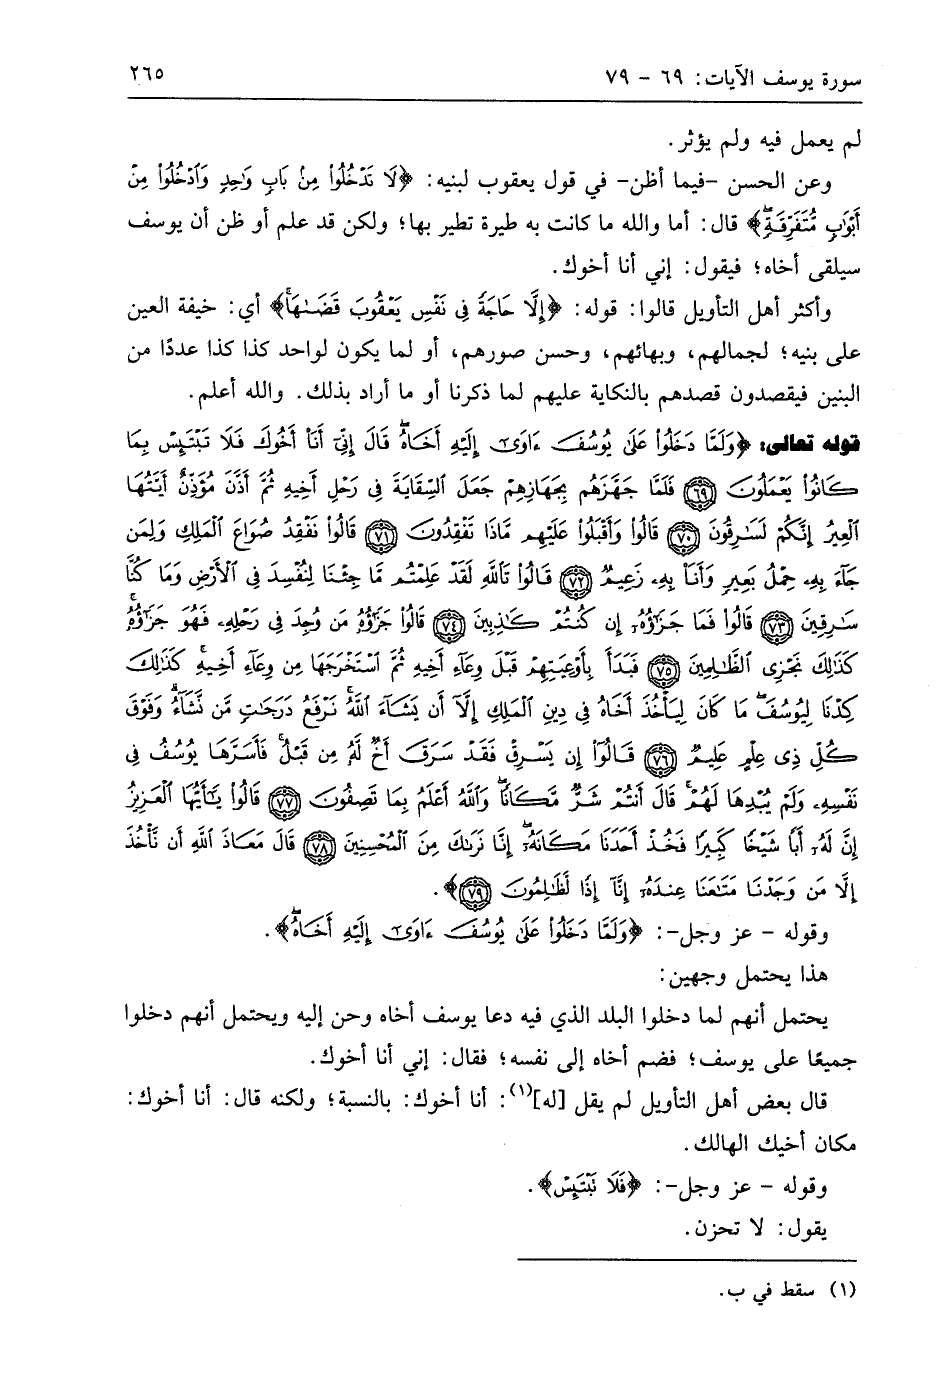 سورة يوسف الآيات: ٦٩ - ٧٩
٢٦٥
لم يعمل فيه ولم يؤثر.
وعن الحسن -فيما أظن- في قول يعقوب لبنيه: ﴿لَا تَدْخُلُوا۟ مِنۢ بَابٍ وَٰحِدٍ وَٱدْخُلُوا۟ مِنْ
أَبْوَٰبٍ مُّتَفَرِّقَةٍۖ﴾ قال: أما والله ما كانت به طيرة تطير بها؛ ولكن قد علم أو ظن أن يوسف
سيلقى أخاه؛ فيقول: إني أنا أخوك.
وأكثر أهل التأويل قالوا: قوله: ﴿إِلَّا حَاجَةً فِى نَفْسِ يَعْقُوبَ قَضَىٰهَاۚ﴾ أي: خيفة العين
على بنيه؛ لجمالهم، وبهائهم، وحسن صورهم، أو لما يكون لواحد كذا كذا عددًا من
البنين فيقصدون قصدهم بالنكاية عليهم لما ذكرنا أو ما أراد بذلك. والله أعلم.
قوله تعالى: ﴿وَلَمَّا دَخَلُوا۟ عَلَىٰ يُوسُفَ ءَاوَىٰٓ إِلَيْهِ أَخَاهُۖ قَالَ إِنِّىٓ أَنَا۠ أَخُوكَ فَلَا تَبْتَئِسْ بِمَا
كَانُوا۟ يَعْمَلُونَ ٦٩ فَلَمَّا جَهَّزَهُم بِجَهَازِهِمْ جَعَلَ ٱلسِّقَايَةَ فِى رَحْلِ أَخِيهِ ثُمَّ أَذَّنَ مُؤَذِّنٌ أَيَّتُهَا
ٱلْعِيرُ إِنَّكُمْ لَسَٰرِقُونَ ٧٠ قَالُوا۟ وَأَقْبَلُوا۟ عَلَيْهِم مَّاذَا تَفْقِدُونَ ٧١ قَالُوا۟ نَفْقِدُ صُوَاعَ ٱلْمَلِكِ وَلِمَن
جَآءَ بِهِۦ حِمْلُ بَعِيرٍ وَأَنَا۠ بِهِۦ زَعِيمٌ ٧٢ قَالُوا۟ تَٱللَّهِ لَقَدْ عَلِمْتُم مَّا جِئْنَا لِنُفْسِدَ فِى ٱلْأَرْضِ وَمَا كُنَّا
سَٰرِقِينَ ٧٣ قَالُوا۟ فَمَا جَزَٰٓؤُهُۥٓ إِن كُنتُمْ كَٰذِبِينَ ٧٤ قَالُوا۟ جَزَٰٓؤُهُۥ مَن وُجِدَ فِى رَحْلِهِۦ فَهُوَ جَزَٰٓؤُهُۥۚ
كَذَٰلِكَ نَجْزِى ٱلظَّٰلِمِينَ ٧٥ فَبَدَأَ بِأَوْعِيَتِهِمْ قَبْلَ وِعَآءِ أَخِيهِ ثُمَّ ٱسْتَخْرَجَهَا مِن وِعَآءِ أَخِيهِۚ كَذَٰلِكَ
كِدْنَا لِيُوسُفَۖ مَا كَانَ لِيَأْخُذَ أَخَاهُ فِى دِينِ ٱلْمَلِكِ إِلَّآ أَن يَشَآءَ ٱللَّهُۚ نَرْفَعُ دَرَجَٰتٍ مَّن نَّشَآءُۗ وَفَوْقَ
كُلِّ ذِى عِلْمٍ عَلِيمٌ ٧٦ قَالُوٓا۟ إِن يَسْرِقْ فَقَدْ سَرَقَ أَخٌ لَّهُۥ مِن قَبْلُۚ فَأَسَرَّهَا يُوسُفُ فِى
نَفْسِهِۦ وَلَمْ يُبْدِهَا لَهُمْۚ قَالَ أَنتُمْ شَرٌّ مَّكَانًاۖ وَٱللَّهُ أَعْلَمُ بِمَا تَصِفُونَ ٧٧ قَالُوا۟ يَٰٓأَيُّهَا ٱلْعَزِيزُ
إِنَّ لَهُۥٓ أَبًا شَيْخًا كَبِيرًا فَخُذْ أَحَدَنَا مَكَانَهُۥٓۖ إِنَّا نَرَىٰكَ مِنَ ٱلْمُحْسِنِينَ ٧٨ قَالَ مَعَاذَ ٱللَّهِ أَن نَّأْخُذَ
إِلَّا مَن وَجَدْنَا مَتَٰعَنَا عِندَهُۥٓ إِنَّآ إِذًا لَّظَٰلِمُونَ ٧٩﴾.
وقوله - عز وجل-: ﴿وَلَمَّا دَخَلُوا۟ عَلَىٰ يُوسُفَ ءَاوَىٰٓ إِلَيْهِ أَخَاهُۖ﴾.
هذا يحتمل وجهين:
يحتمل أنهم لما دخلوا البلد الذي فيه دعا يوسف أخاه وحن إليه ويحتمل أنهم دخلوا
جميعًا على يوسف؛ فضم أخاه إلى نفسه؛ فقال: إني أنا أخوك.
قال بعض أهل التأويل لم يقل [له](١): أنا أخوك: بالنسبة؛ ولكنه قال: أنا أخوك:
مكان أخيك الهالك.
وقوله - عز وجل-: ﴿فَلَا تَبْتَئِسْ﴾.
يقول: لا تحزن.
(١) سقط في ب.